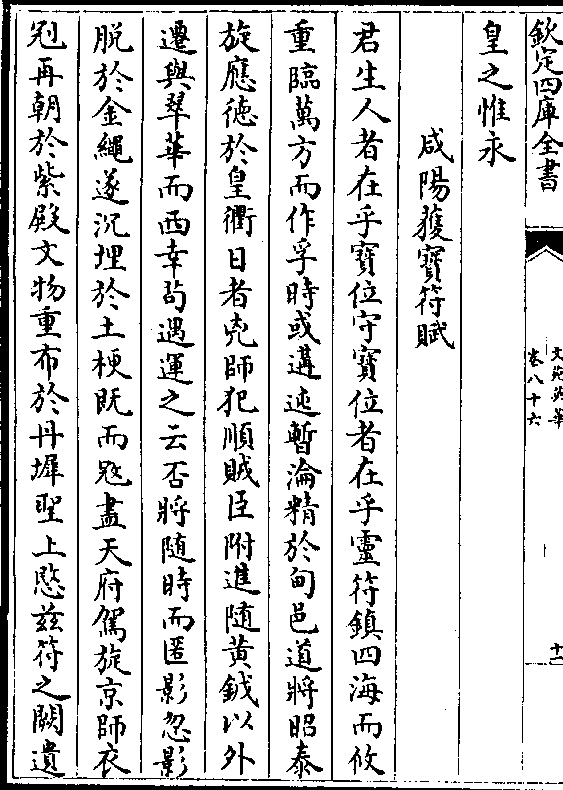 欽定四庫全書
文苑英華
卷八十六
十二
皇之惟永
咸陽獲寶符賦
君生人者在乎寶位守寶位者在乎靈符鎮四海而攸
重臨萬方而作孚時或遘迍暫淪精於甸邑道將昭泰
旋應徳於皇衢日者兇師犯順賊臣附進随黄鉞以外
遷與翠華而西幸茍遇運之云否將随時而匿影忽影
脱於金繩遂沉埋於土梗既而㓂盡天府駕旋京師衣
冠再朝於紫殿文物重布於丹墀聖上愍兹符之闕遺